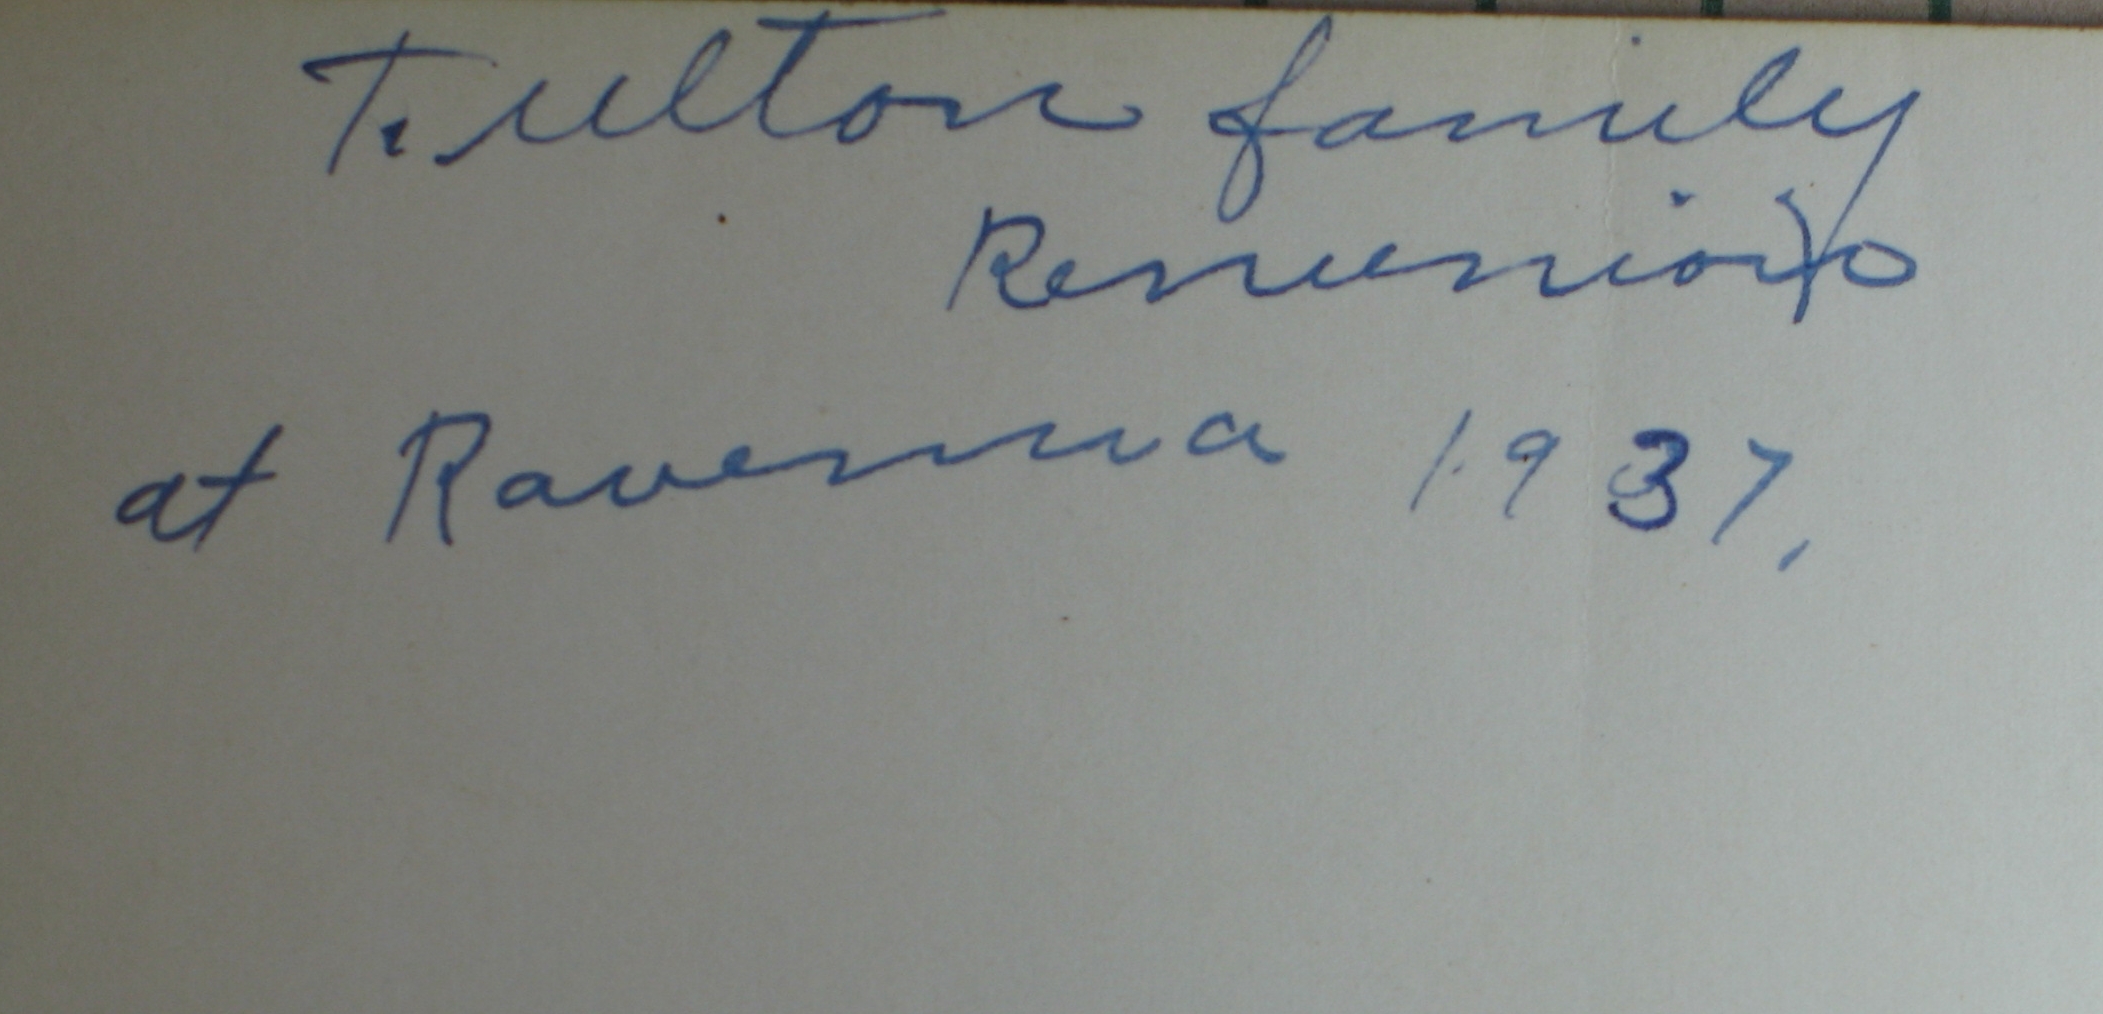 Fulton family
Reunion
at Ravenna 1937,